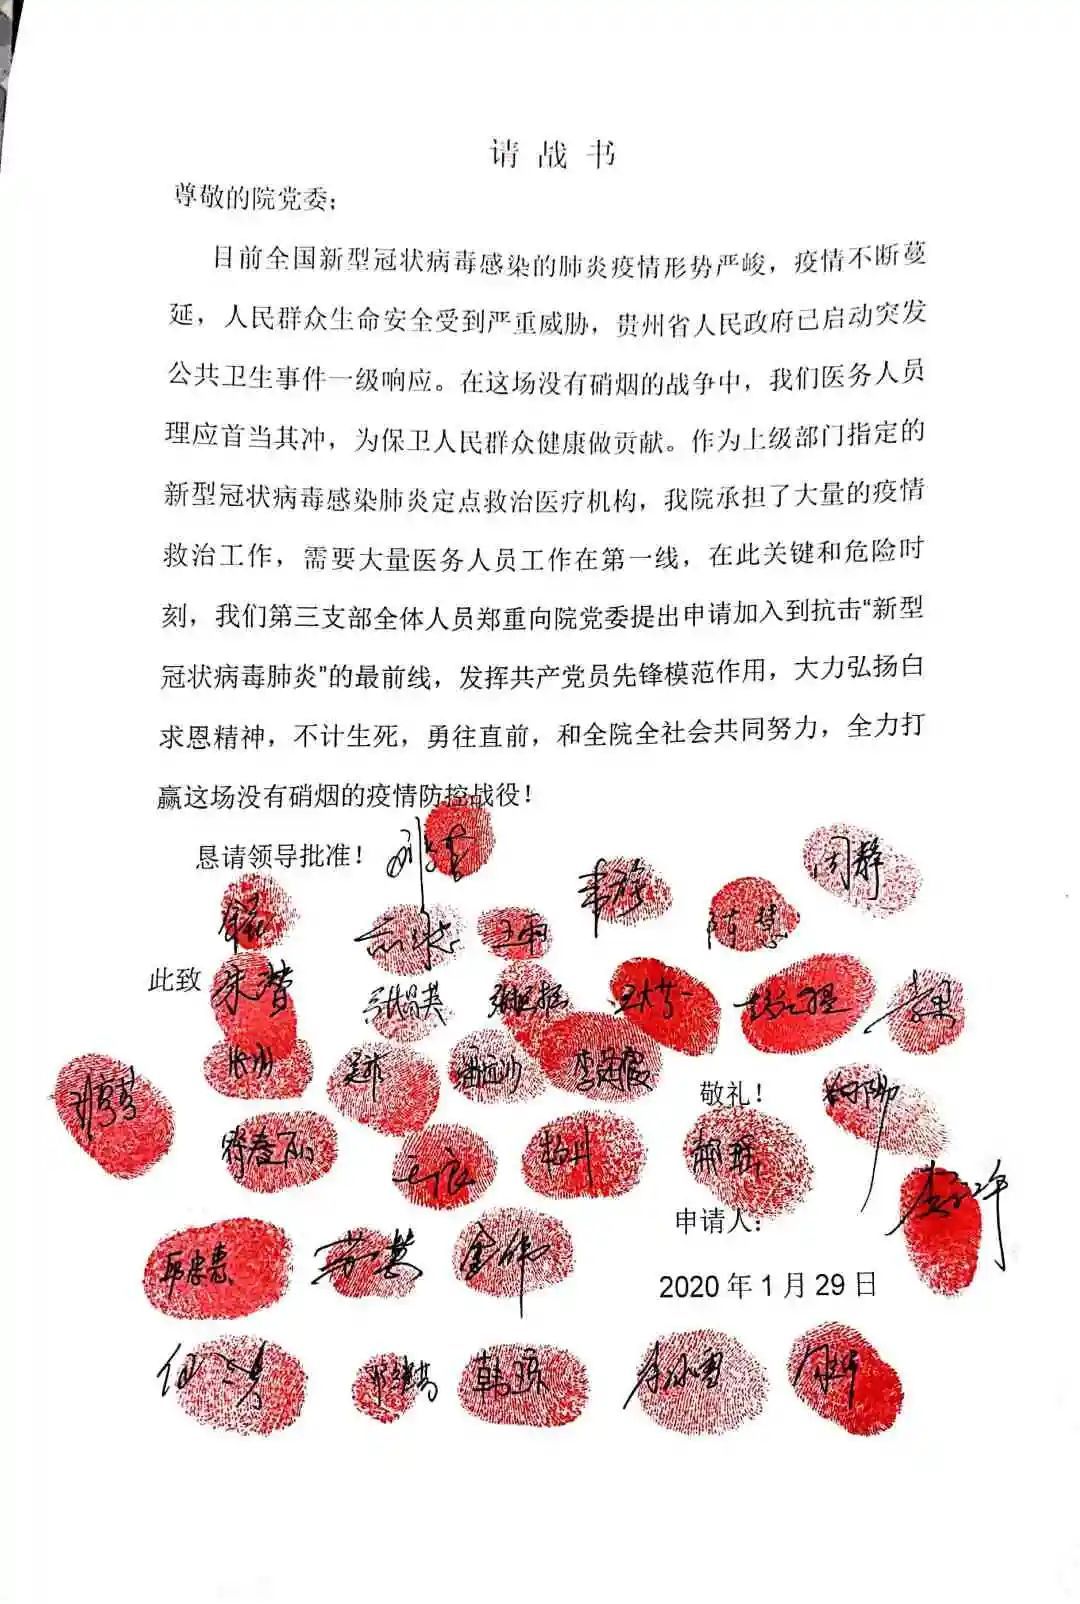 请 战 书
尊敬的院党委：
目前全国新型冠状病毒感染的肺炎疫情形势严峻，疫情不断蔓
延，人民群众生命安全受到严重威胁，贵州省人民政府已启动突发
公共卫生事件一级响应。在这场没有硝烟的战争中，我们医务人员
理应首当其冲，为保卫人民群众健康做贡献。作为上级部门指定的
新型冠状病毒感染肺炎定点救治医疗机构，我院承担了大量的疫情
救治工作，需要大量医务人员工作在第一线，在此关键和危险时
刻，我们第三支部全体人员郑重向院党委提出申请加入到抗击“新型
冠状病毒肺炎”的最前线，发挥共产党员先锋模范作用，大力弘扬白
求恩精神，不计生死，勇往直前，和全院全社会共同努力，全力打
赢这场没有硝烟的疫情防控战役！
恳请领导批准！
周静
陈慧
王雨
此致
朱梦
张昌英
敬礼！
申请人：
金伟
2020 年 1 月 29 日
韩琼
李冰雪